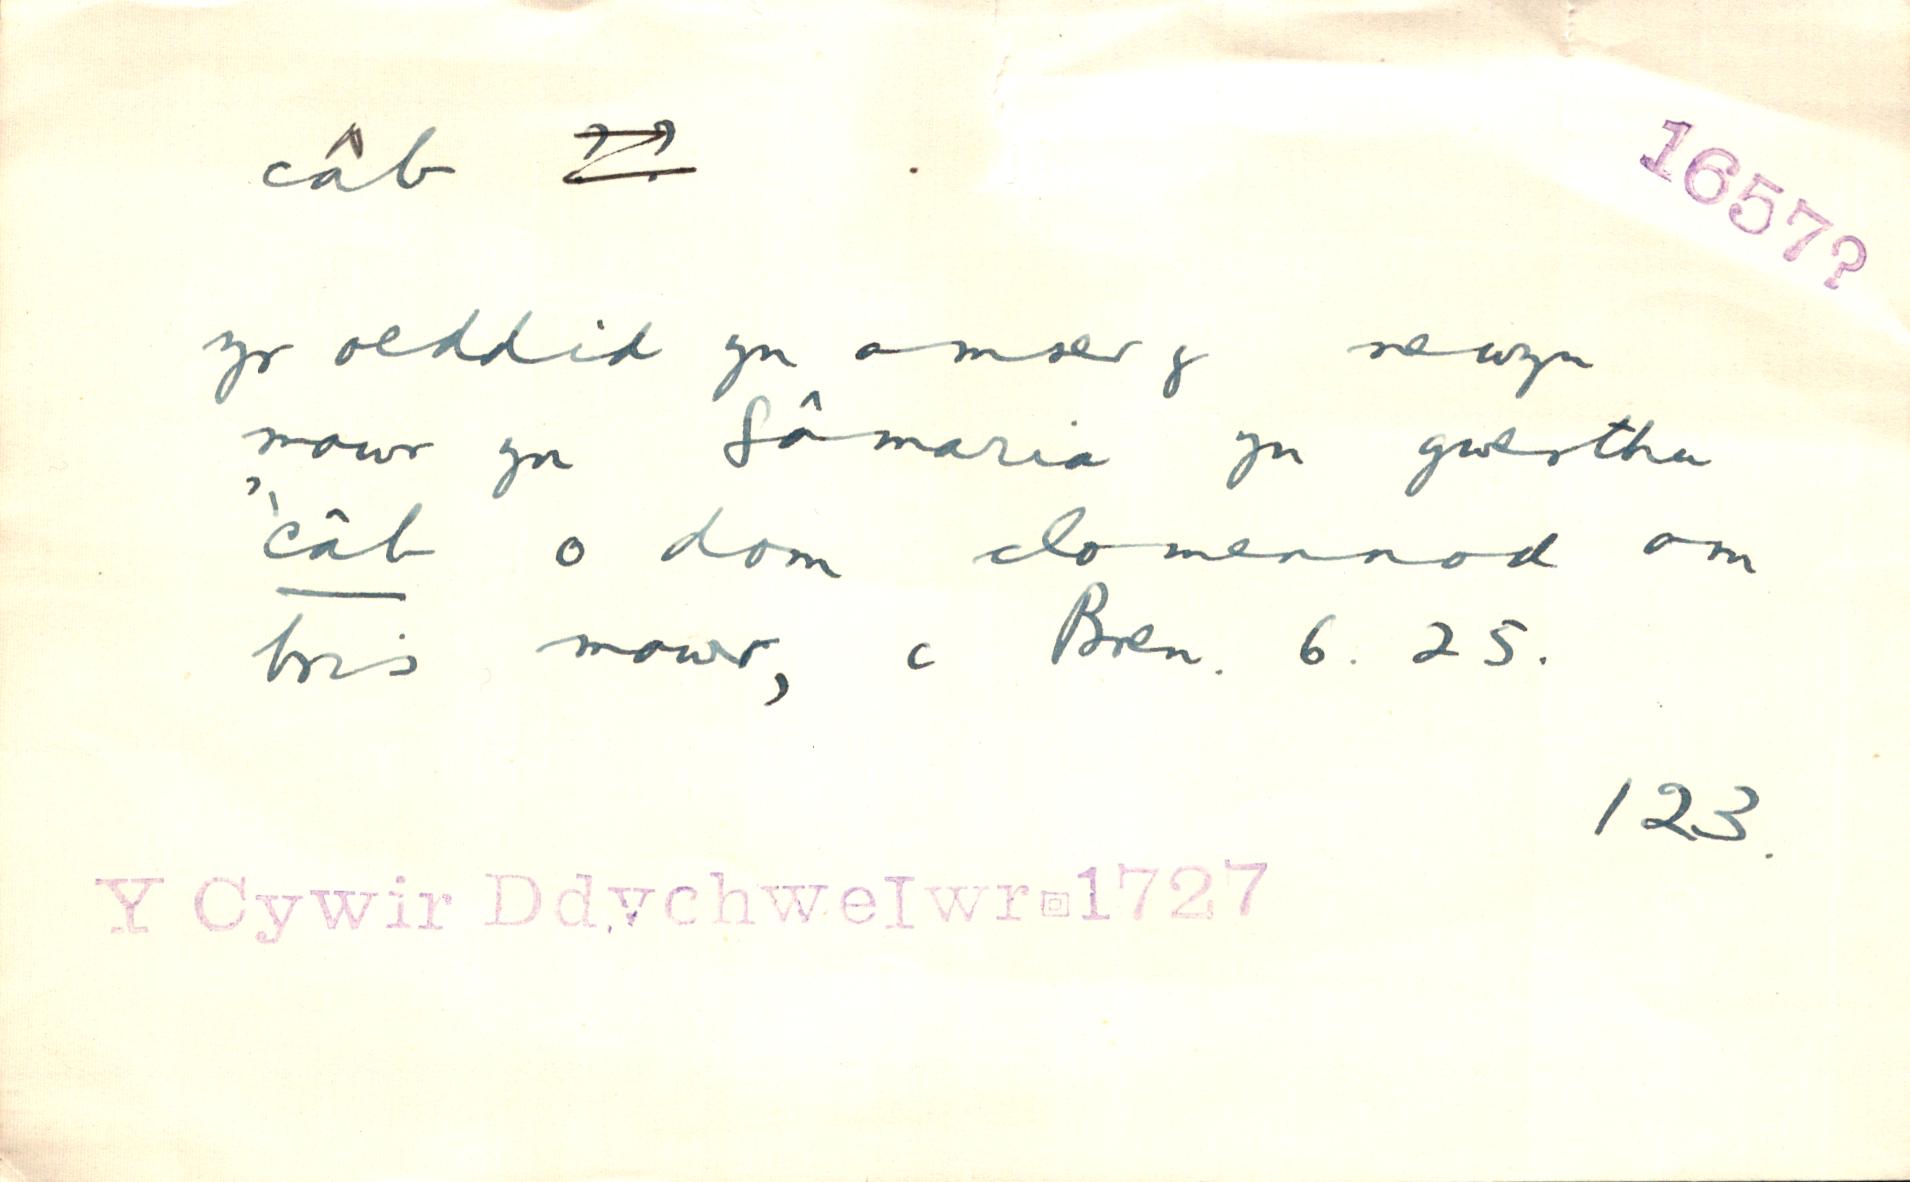 câb ??
1657?
yr oeddid yn amser y newyn
mawr yn Sâmaria yn gwerthu
'câb o dom clomennod am
bris mawr, c Bren. 6. 25.
123.
Y Cywir DdychweIwr 1727